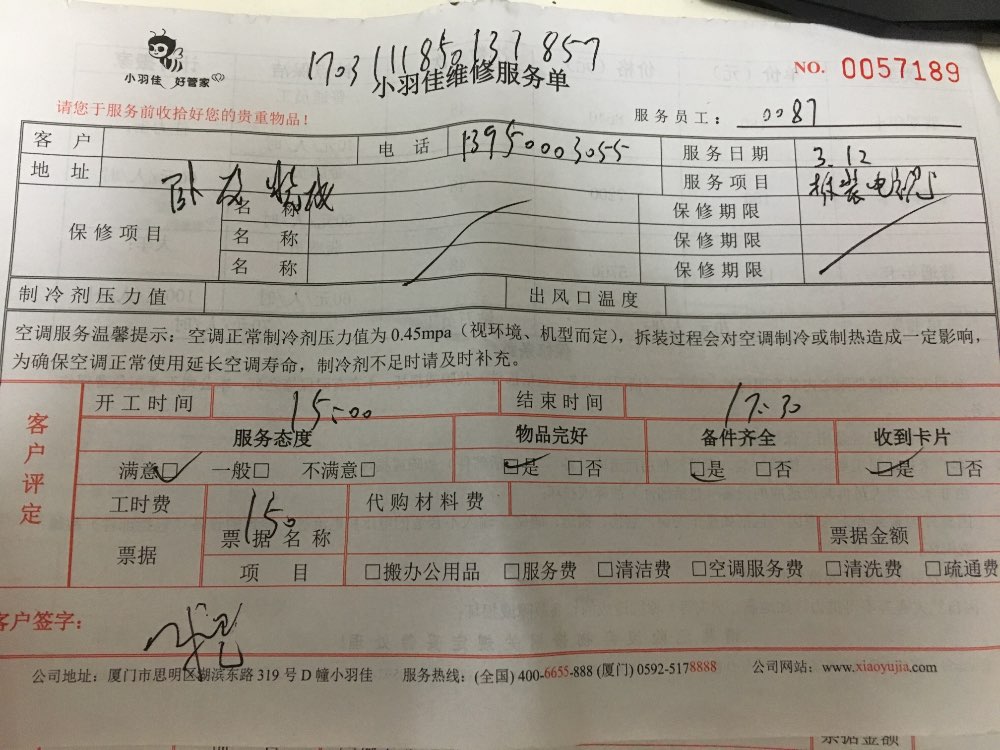 1703111850137857
小羽佳 好管家
小羽佳维修服务单
NO. 0057189
请您于服务前收拾好您的贵重物品！
服务员工： 0087
客 户 电 话 13950003055 服务日期 3.12
地 址 服务项目 拆装电
保修项目 名 称 保修期限
名 称 保修期限
名 称 保修期限
制冷剂压力值 出风口温度
空调服务温馨提示：空调正常制冷剂压力值为0.45mpa（视环境、机型而定），拆装过程会对空调制冷或制热造成一定影响，
为确保空调正常使用延长空调寿命，制冷剂不足时请及时补充。
客户评定
开工时间 15:00 结束时间 17:30
服务态度 物品完好 备件齐全 收到卡片
满意□ 一般□ 不满意□ □是 □否 □是 □否 □是 □否
工时费 150 代购材料费
票据 票据名称 票据金额
项 目 □搬办公用品 □服务费 □清洁费 □空调服务费 □清洗费 □疏通费
客户签字：
公司地址：厦门市思明区湖滨东路319号D幢小羽佳 服务热线：(全国) 400-6655-888 (厦门) 0592-5178888 公司网站：www.xiaoyujia.com
票据金额